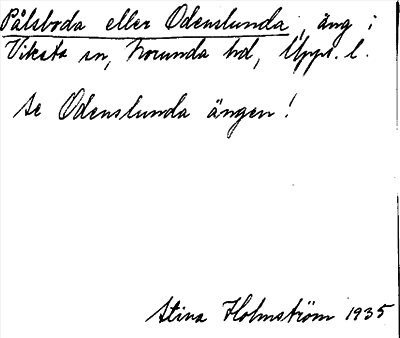 Pålsboda eller Odenslunda, äng i
Viksta sn, Norunda hd, Upps. l.
se Odenslunda ängen!
Stina Holmström 1935